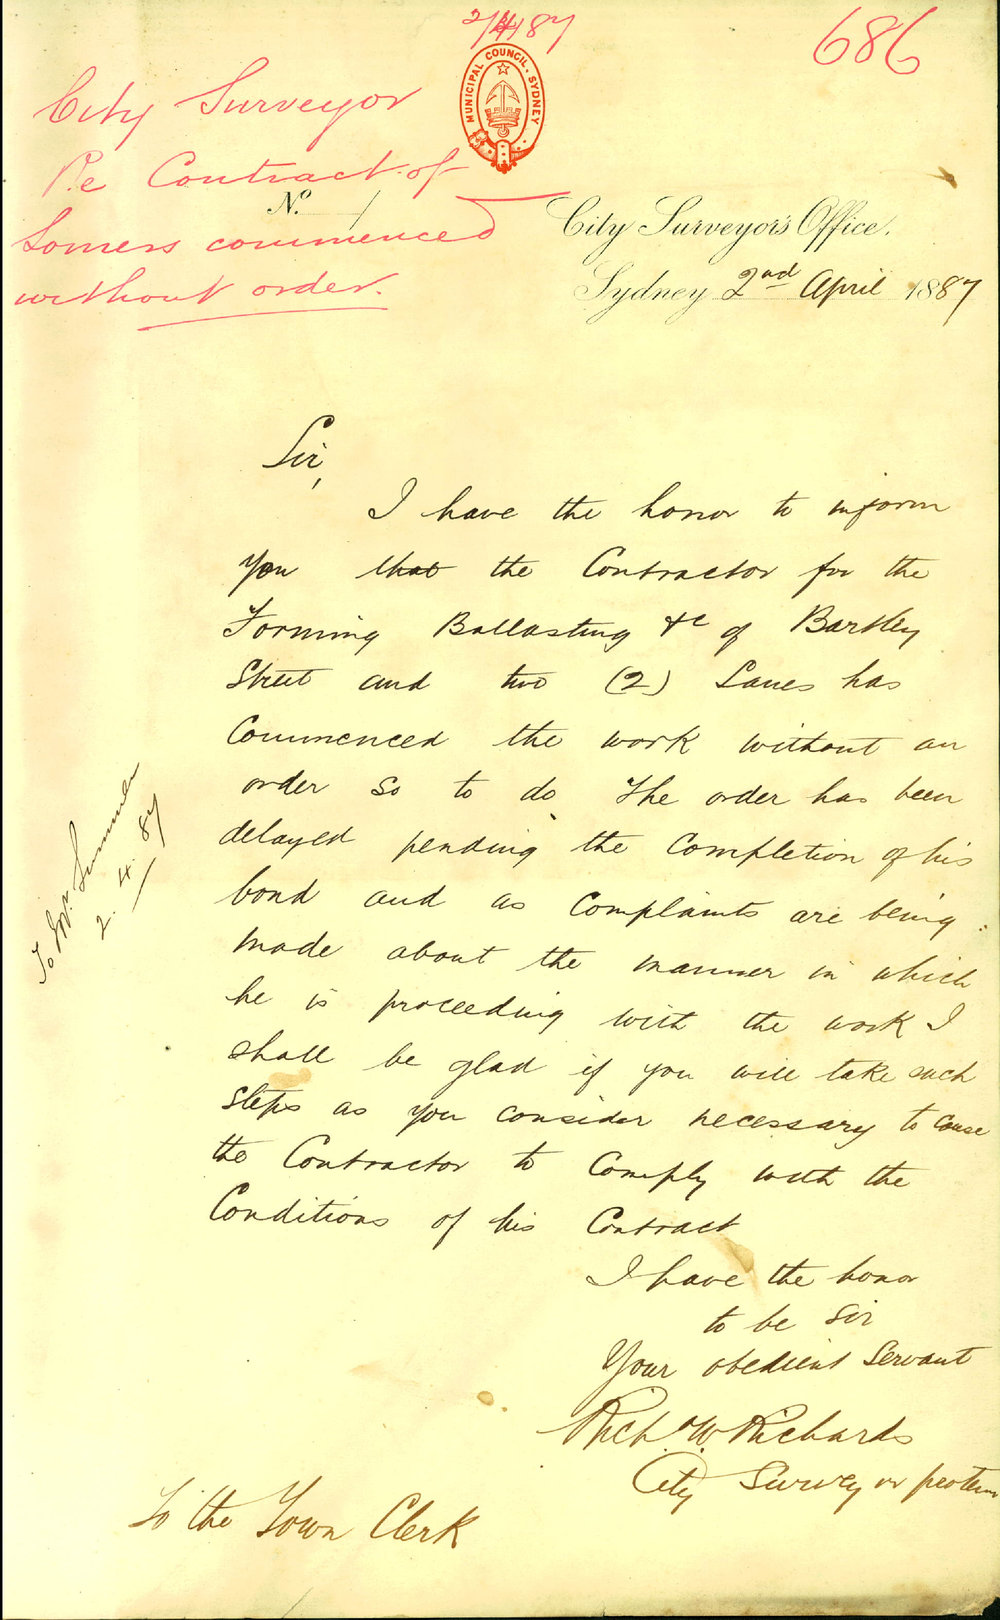 2/4/87
686
MUNICIPAL COUNCIL. SYDNEY
City Surveyor
Re Contract of
Somers commenced
without order.
No. 1
City Surveyor's Office.
Sydney 2nd April 1887
Sir,
I have the honor to inform
you that the Contractor for the
Forming Ballasting &c of Bartley
Street and two (2) Lanes has
Commenced the work without an
order so to do The order has been
delayed pending the Completion of his
bond and as Complaints are being
made about the manner in which
he is proceeding with the work I
shall be glad if you will take such
steps as you consider necessary to cause
the Contractor to Comply with the
Conditions of his Contract
I have the honor
to be Sir
Your obedient Servant
Richd W. Richards
City Surveyor pro tem
To the Town Clerk
To Mr.
2. 4. 87